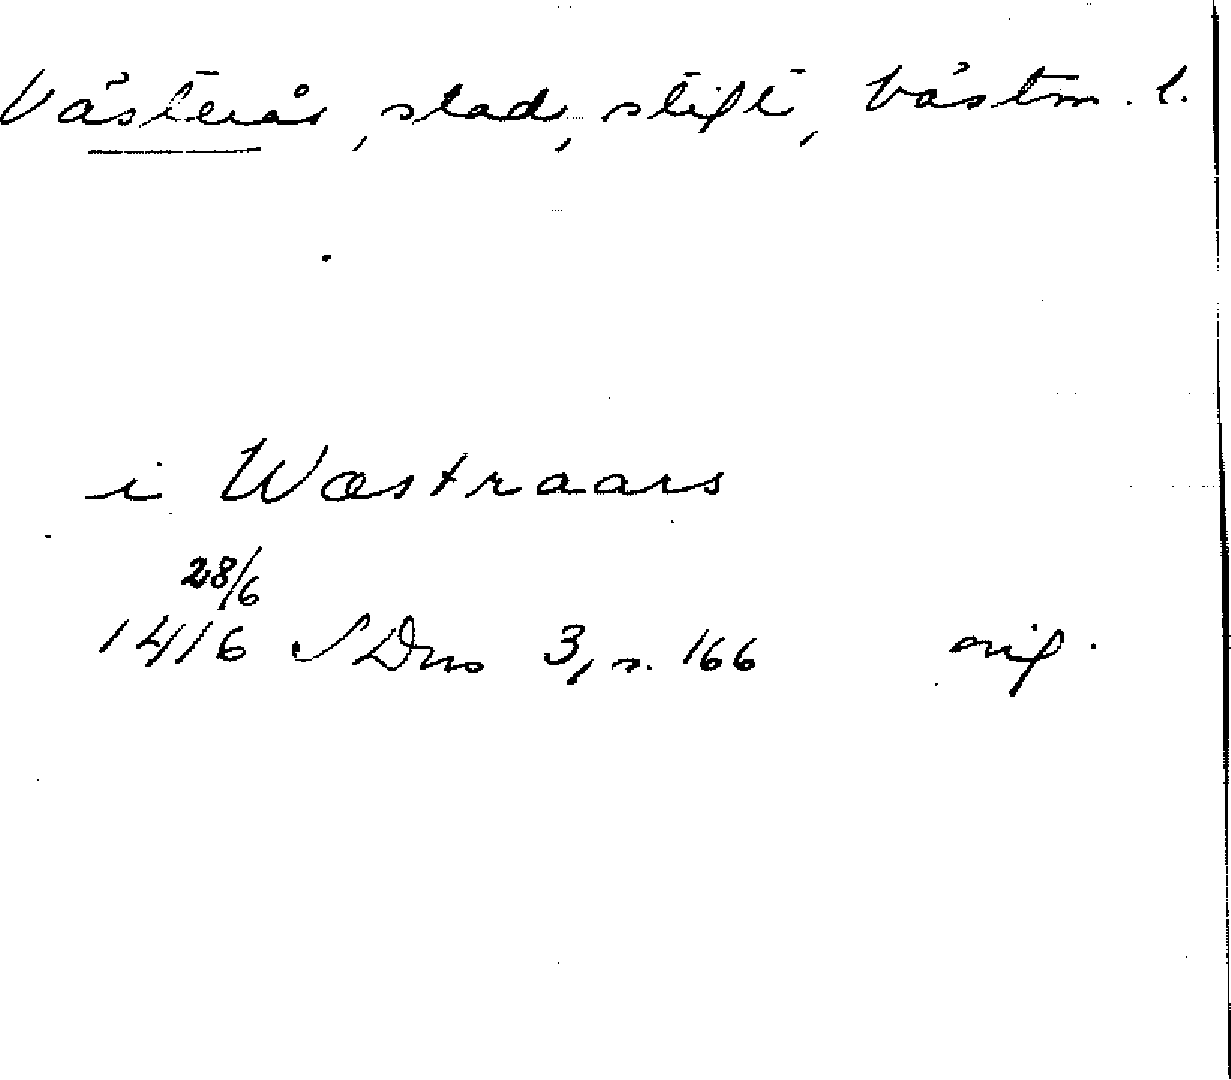 Västerås, stad, stift, Västm. l.
i Wæstraars
28/6
1416 SDns 3, s. 166 orig.